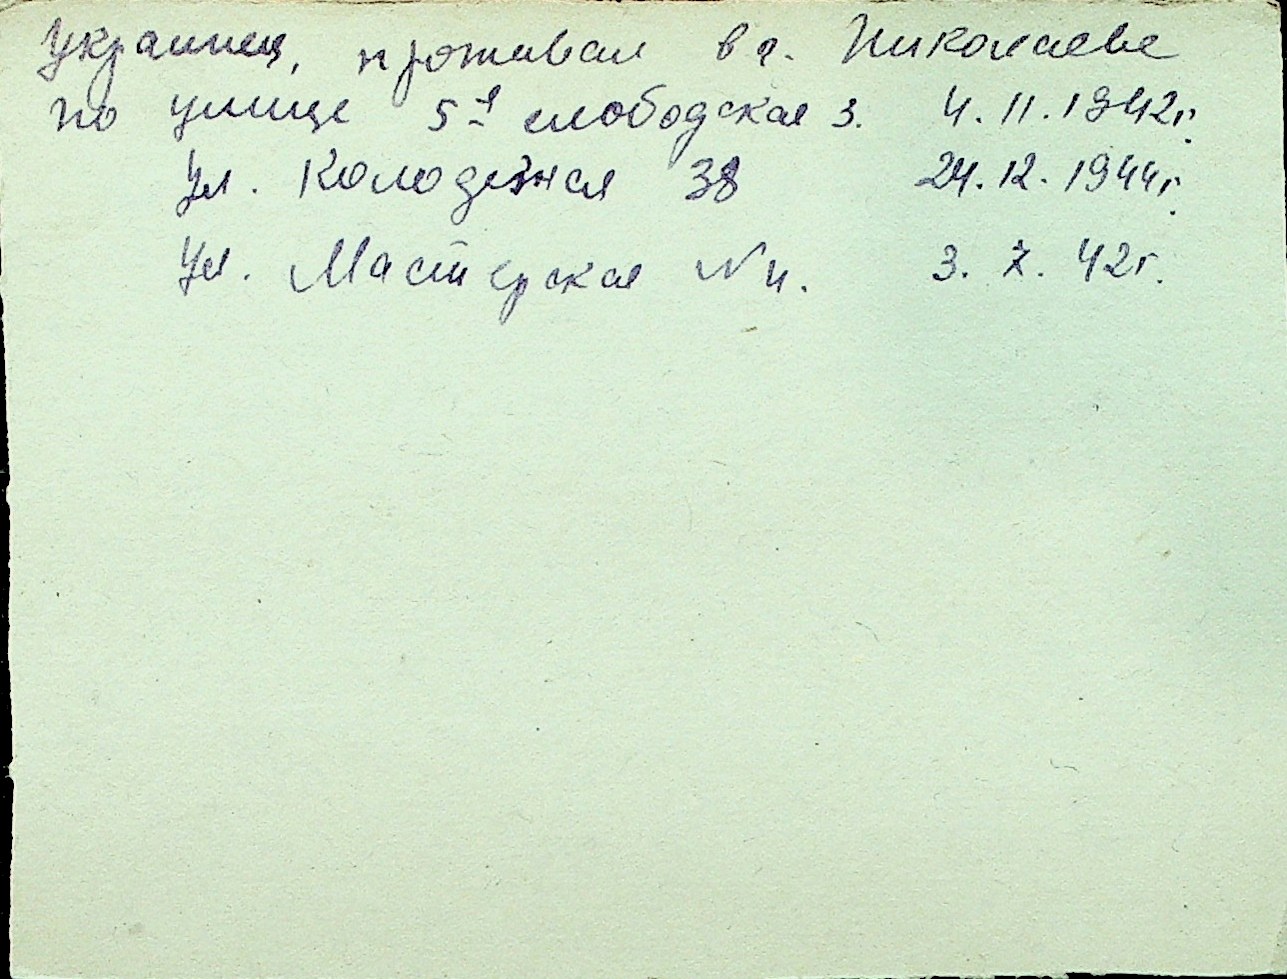 Украинец, проживал в г. Николаеве
по улице 5-я слободская 3. 4.11.1942г.
Ул. Колодезная 38 24.12.1944г.
Ул. Мастерская N4. 3.7.42г.